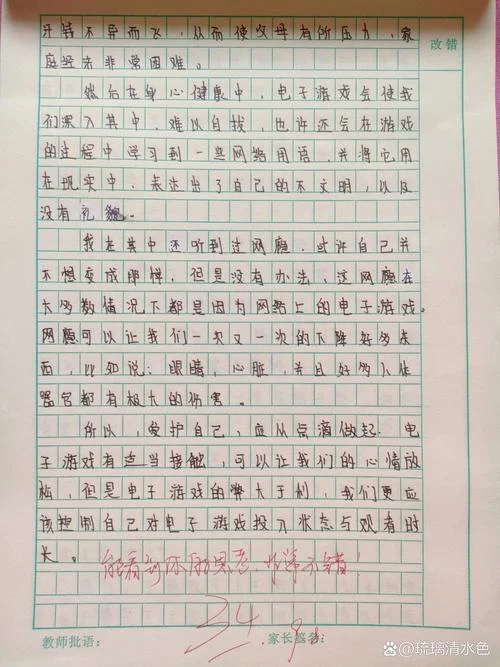 牙钱不异而飞，从而使父母有所压力，家
改错
庭经济非常困难。
然后在身心健康中，电子游戏会使我
们深入其中，难以自拔，也许还会在游戏
的过程中学习到一些网络用语，并将它用
在现实中，表达出了自己的不文明，以及
没有礼貌。
我在其中还听到过网瘾，或许自己并
不想变成那样，但是没有办法，这网瘾在
大多数情况下都是因为网络上的电子游戏。
网瘾可以让我们一次又一次的下降好多东
西，比如说：眼睛，心脏，并且好多小体
器官都有极大的伤害。
所以，爱护自己，应从点滴做起。电
子游戏有点当接触，可以让我们的心情放
松，但是电子游戏的弊大于利，我们更应
该控制自己对电子游戏投入状态与观看时
长。
能看到你的思考，非常不错！
34
教师批语：
家长签名：
@琉璃清水色